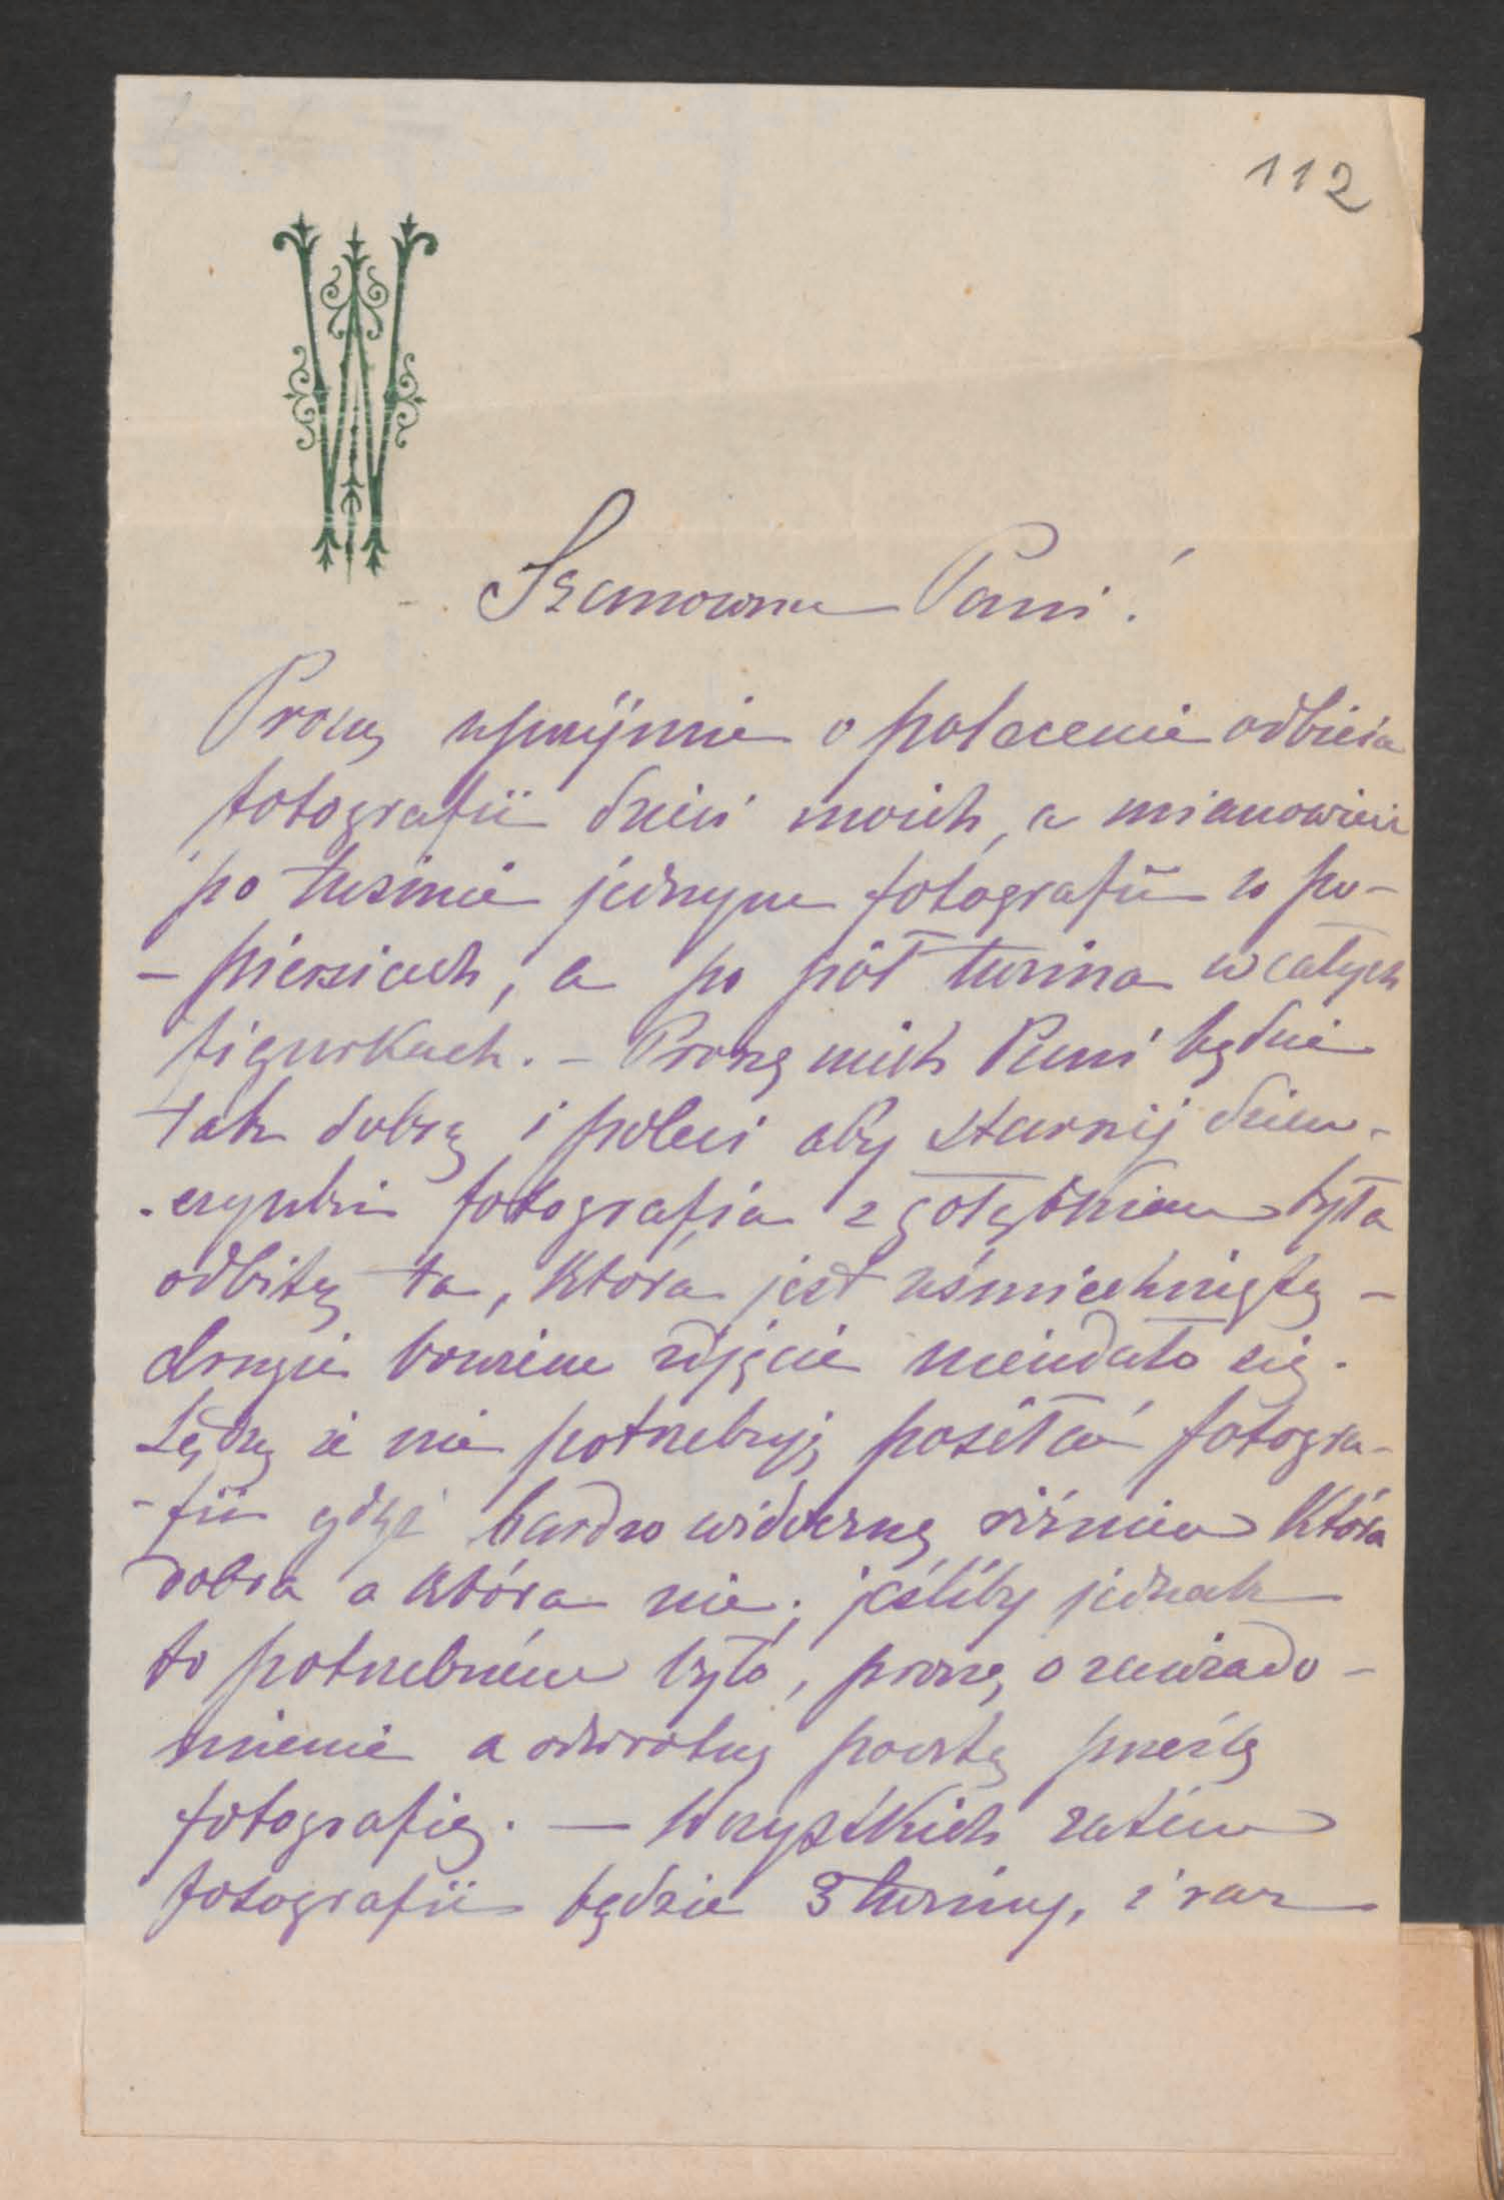 112
W
Szanowna Pani!
Proszę uprzejmie o polecenie odbicia
fotografii dzieci moich, a mianowicie
po tuzinie jednym fotografii w po-
-piersiach, a po pół tuzina w całych
figurkach. – Proszę niech Pani będzie
tak dobrą i poleci aby starszej dziew-
-czynki fotografia z gołębkiem była
odbitą ta, która jest uśmiechniętą –
drugie bowiem zdjęcie nieudało się.
Sądzę że nie potrzebuję posełać fotogra-
-fii gdyż bardzo widoczną różnica która
dobra a która nie; jeśliby jednak
to potrzebném było, proszę o zawiado-
mienie a odwrotną pocztą prześlę
fotografię. — Wszystkich zatém
fotografii będzie 3 tuziny, i raz